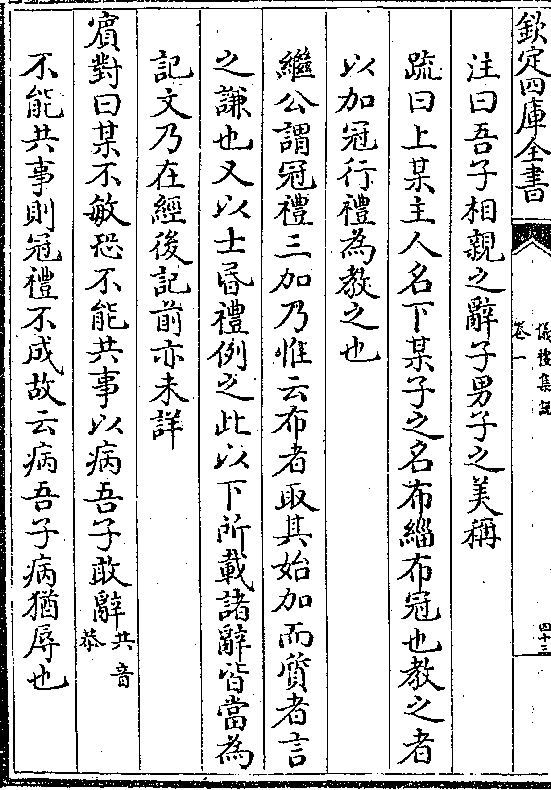 欽定四庫全書
儀禮集說
卷一
四十三
注曰吾子相親之辭子男子之美稱
疏曰上某主人名下某子之名布緇布冠也教之者
以加冠行禮為教之也
繼公謂冠禮三加乃惟云布者取其始加而質者言
之謙也又以士昬禮例之此以下所載諸辭皆當為
記文乃在經後記前亦未詳
賔對曰某不敏恐不能共事以病吾子敢辭共音恭
不能共事則冠禮不成故云病吾子病猶辱也